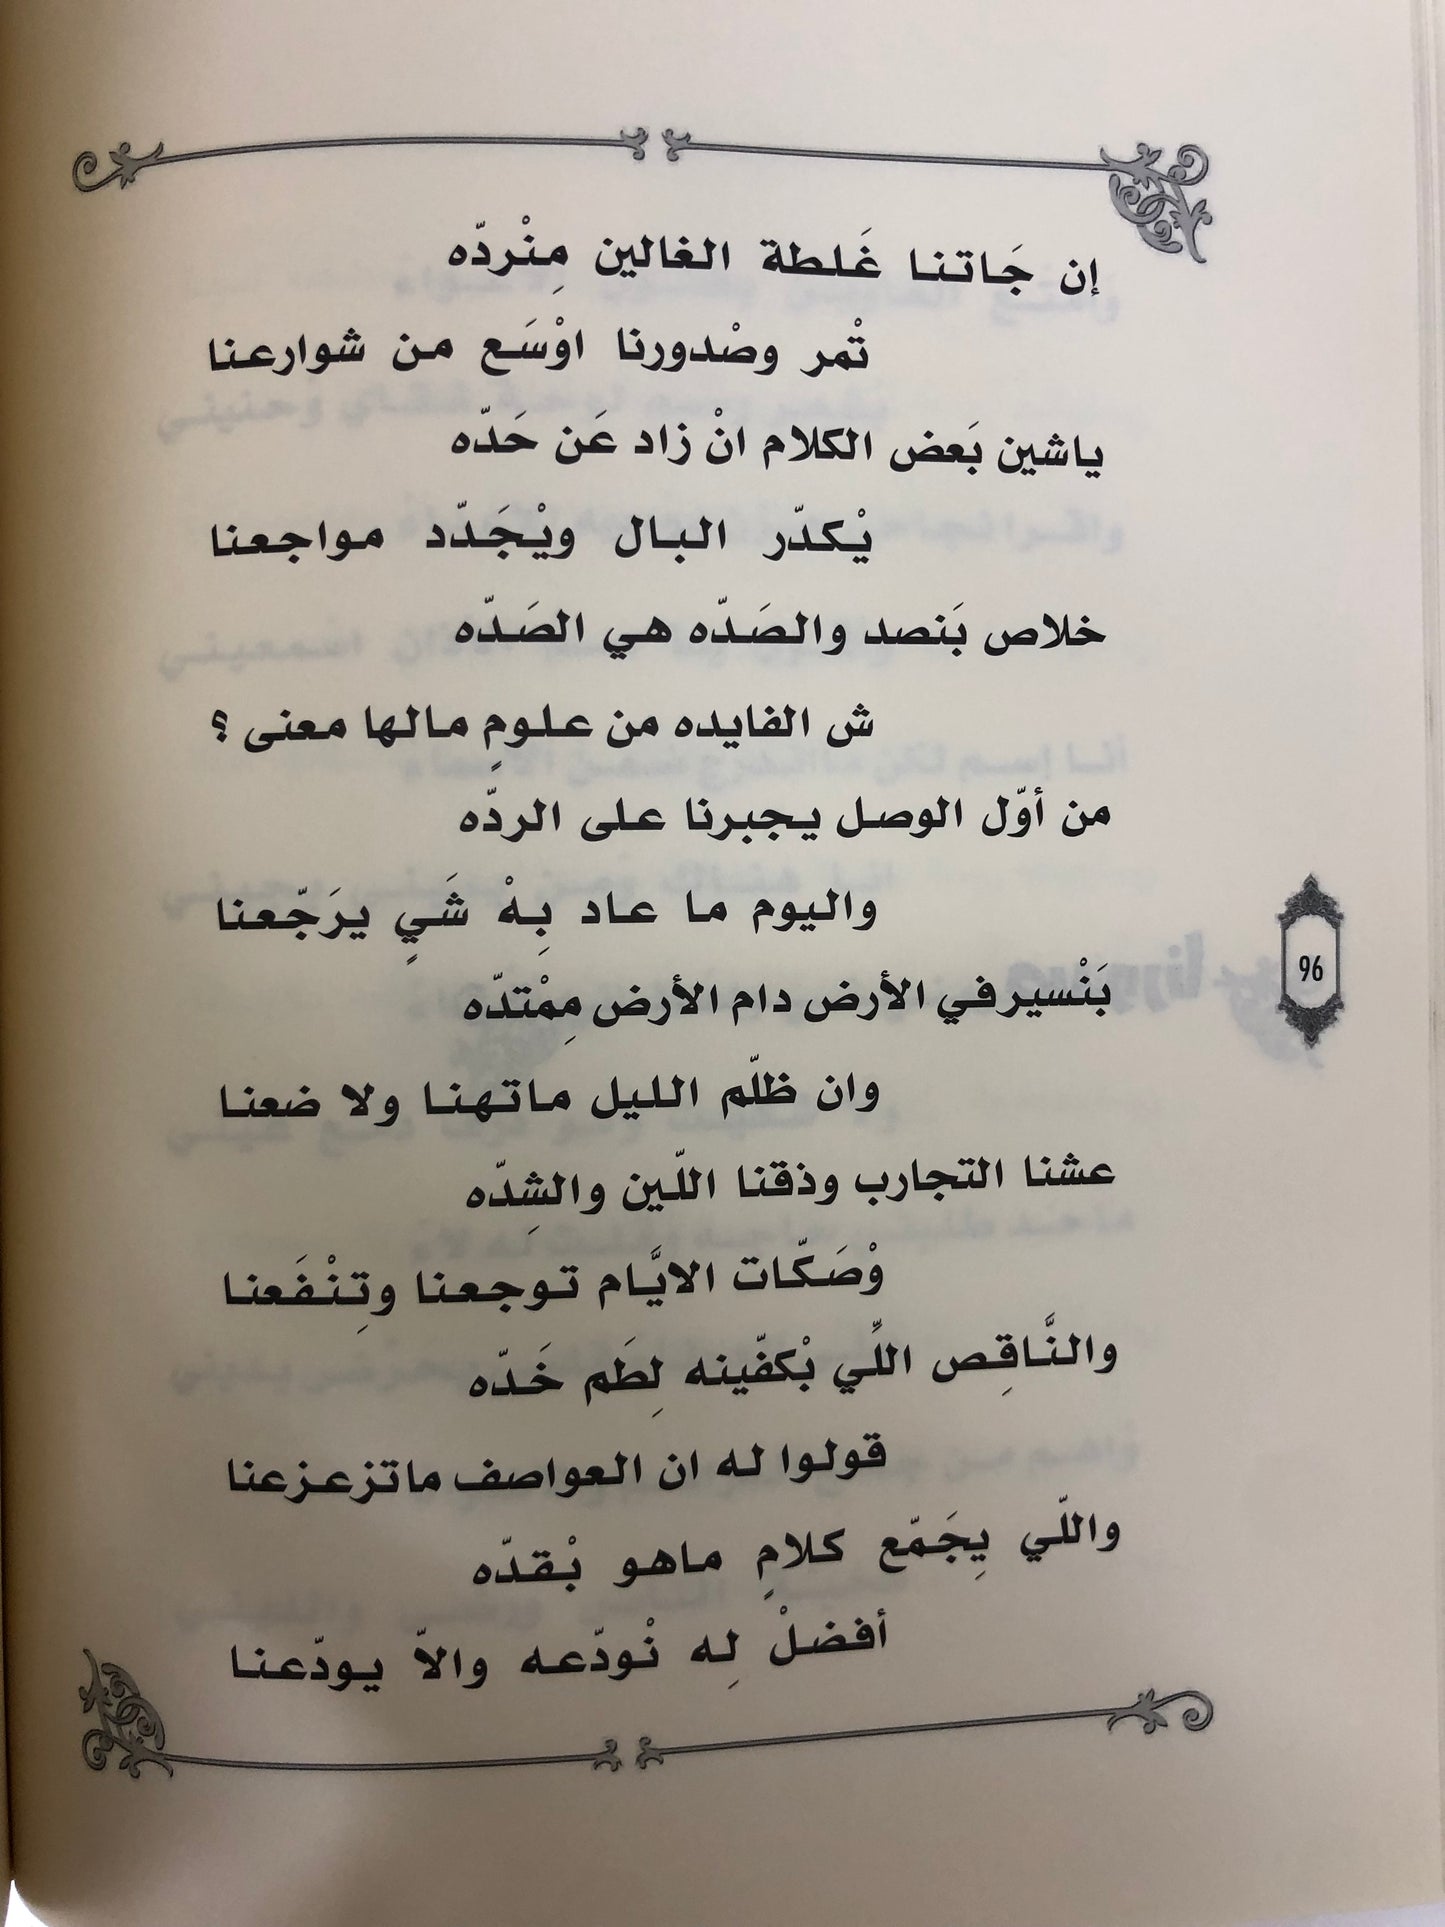 إن جَاتنا غَلطة الغالين مِنْردّه
تْمر وصْدورنا اوْسَع من شوارعنا
ياشين بَعض الكلام انْ زاد عَن حَدّه
يْكدّر البال ويْجَدّد مواجعنا
خلاص بَنصد والصَدّه هي الصَدّه
ش الفايده من علومٍ مالها معنى ؟
من أوّل الوصل يجبرنا على الردّه
واليوم ما عاد بِهْ شَيٍ يرَجّعنا
بَنْسير في الأرض دام الأرض مِمْتدّه
96
وان ظلّم الليل ماتهنا ولا ضعنا
عشنا التجارب وذقنا اللّين والشِدّه
وْصَكّات الايَّام توجعنا وتِنْفَعنا
والنَّاقِص اللِّي بْكفّينه لِطَم خَدّه
قولوا له ان العواصف ماتزعزعنا
واللّي يِجَمّع كلامٍ ماهو بْقدّه
أفضلْ لِه نْودّعه والاّ يودّعنا